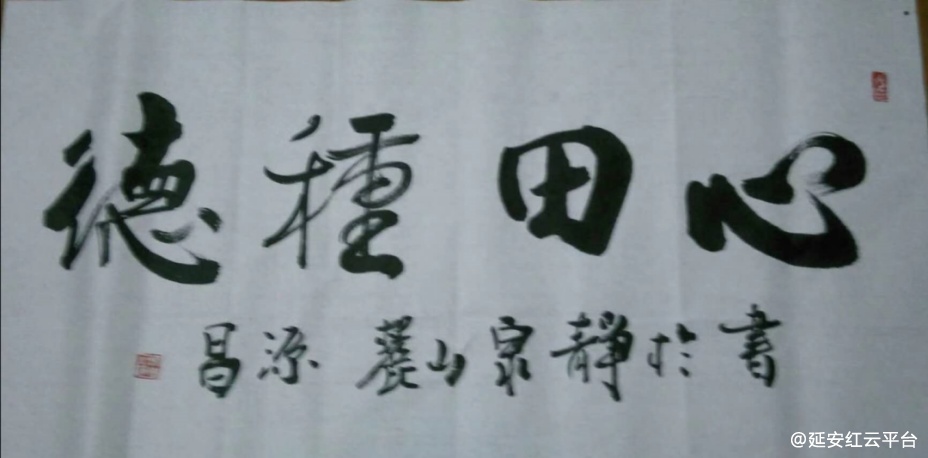 心田種德
書於靜泉山麓源昌
@延安红云平台